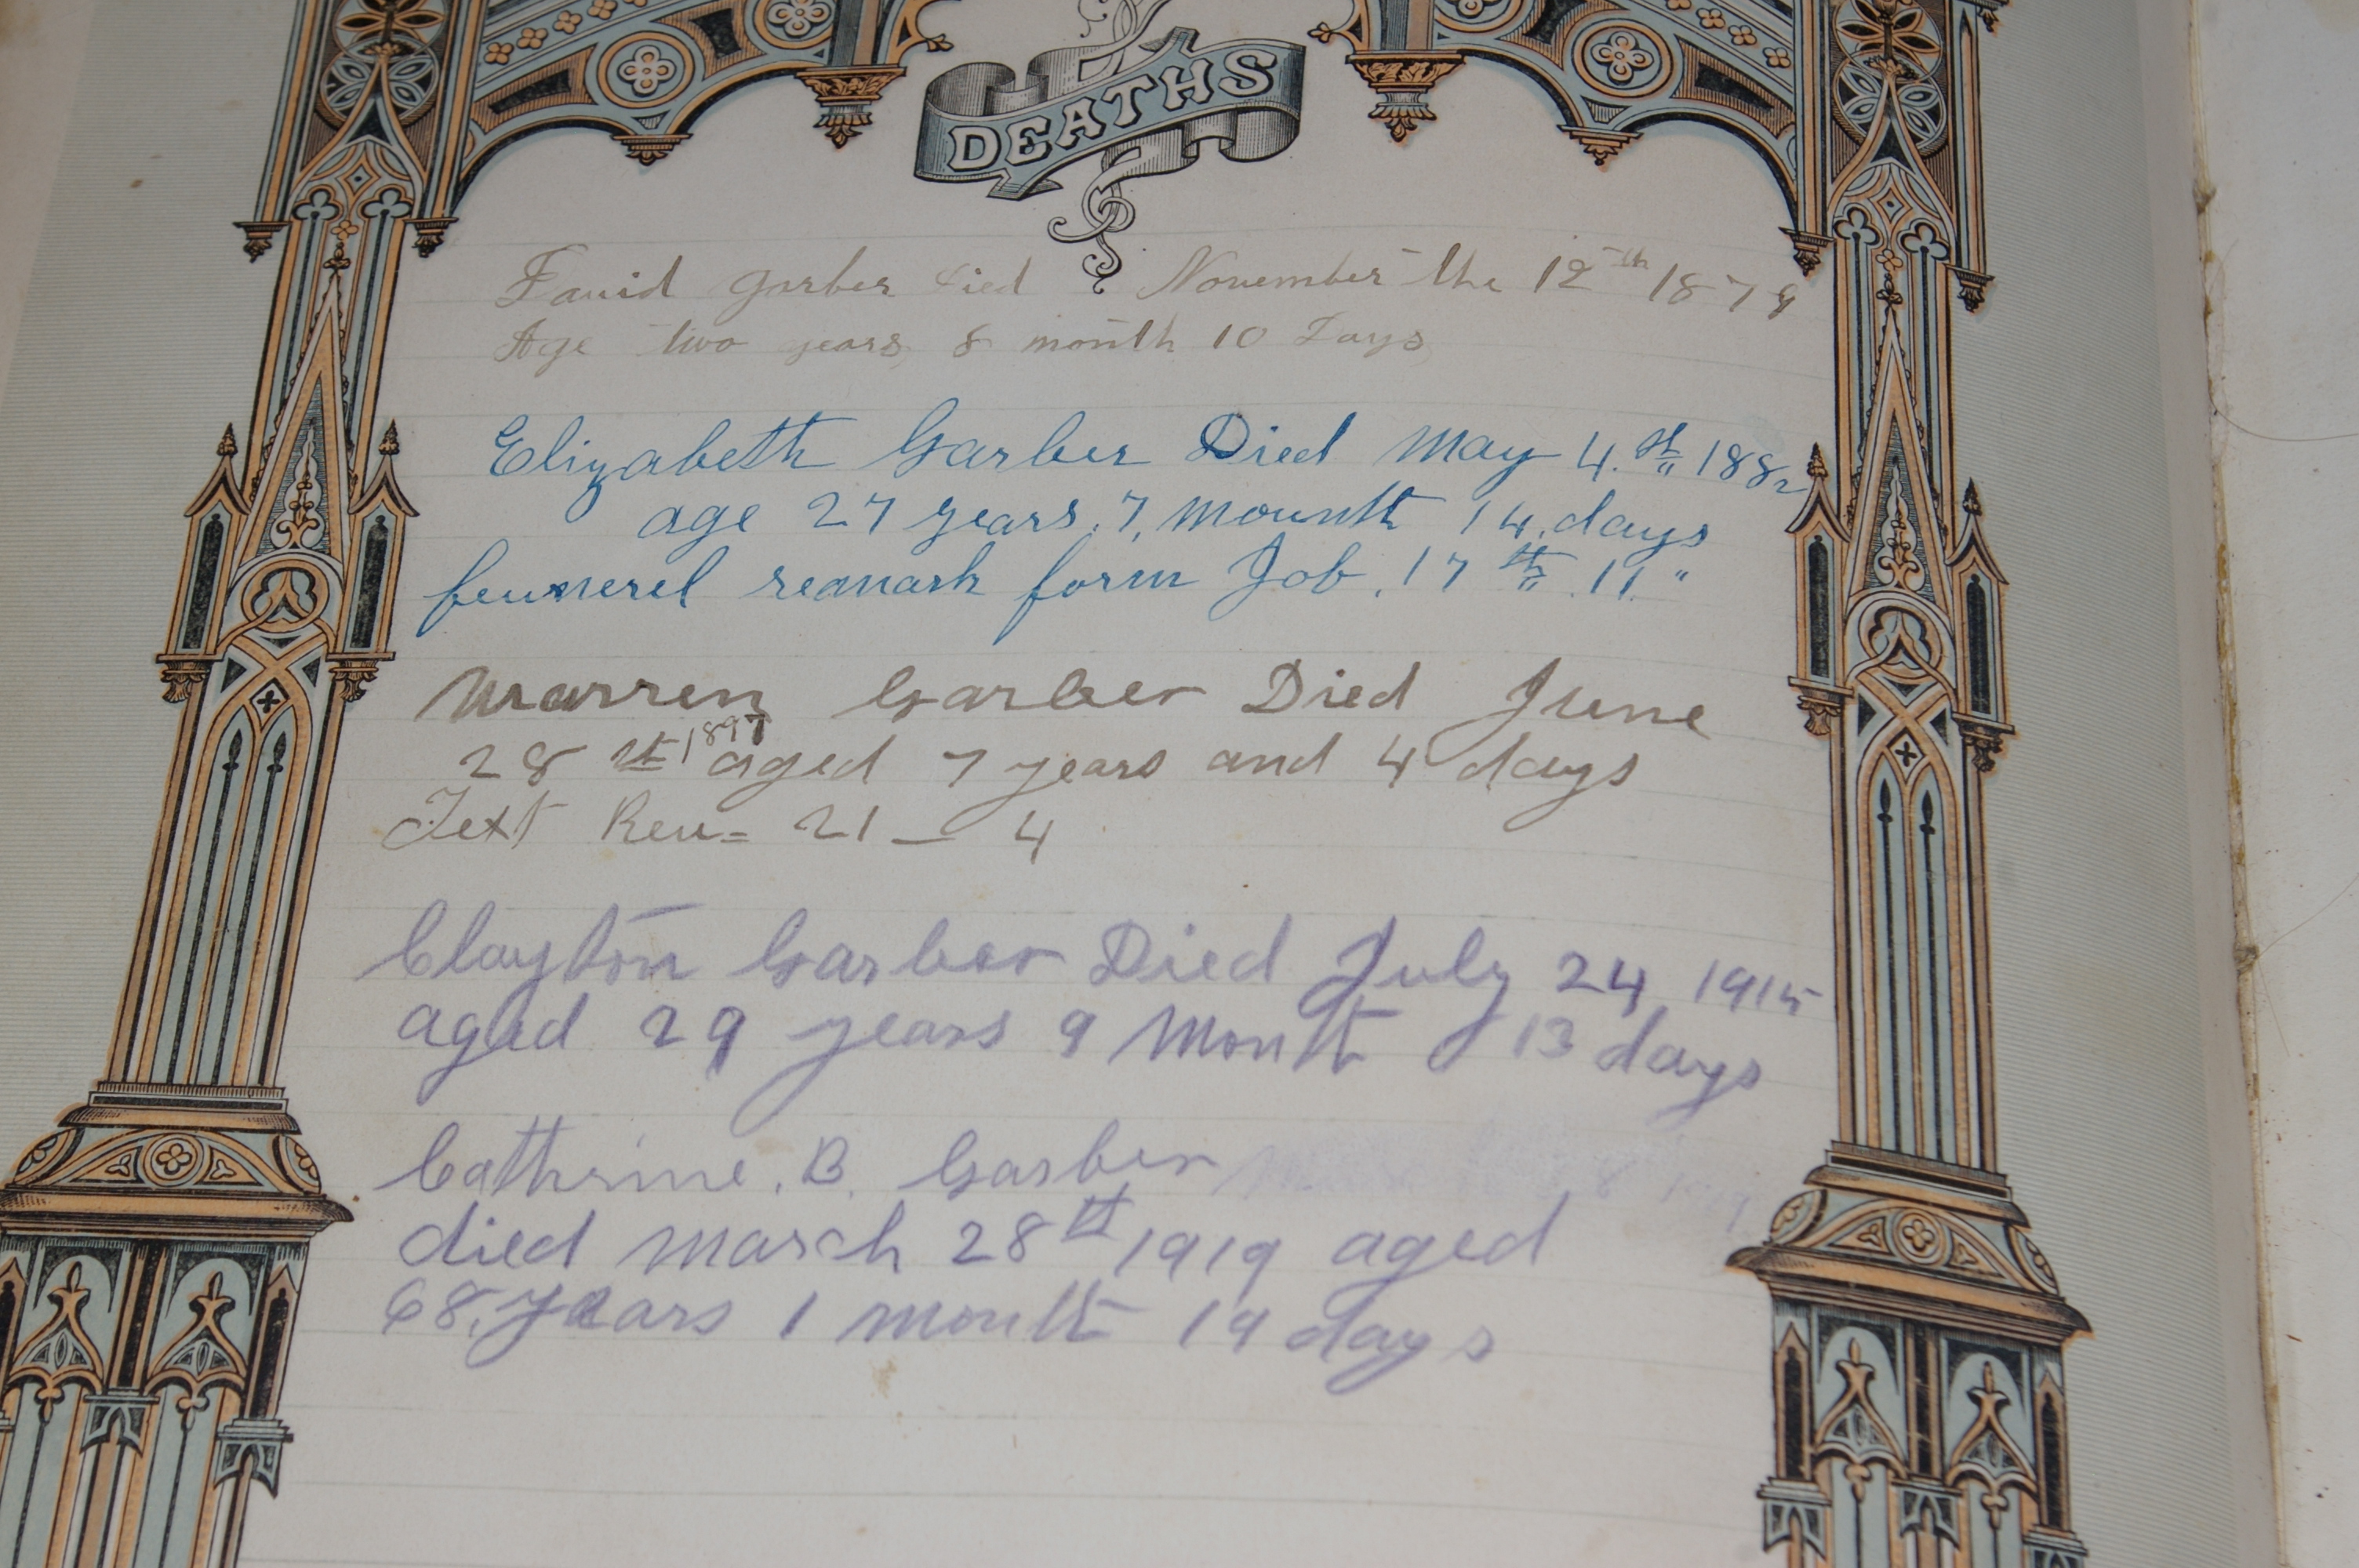 DEATHS
David Garber Died November the 12th 1879
Age two years, 8 month 10 Days
Elizabeth Garber Died May 4.th 1882
age 27 years, 7, mounth 14, days
feunnerel remark form Job. 17th 11"
Warren Garber Died June
28th 1897 aged 7 years and 4 days
Text Rev= 21 – 4
Clayton Garber Died July 24, 1915
aged 29 years 9 Month 13 days
Cathrine. B. Garber
died March 28th 1919 aged
68, years 1 month 19 days